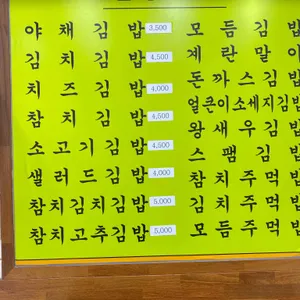 야채김밥 3,500
김치김밥 4,500
치즈김밥 4,000
참치김밥 4,500
소고기김밥 4,500
샐러드김밥 4,000
참치김치김밥 5,000
참치고추김밥 5,000
모듬김밥
계란말이
돈까스김밥
얼큰이소세지김밥
왕새우김밥
스팸김밥
참치주먹밥
김치주먹밥
모듬주먹밥